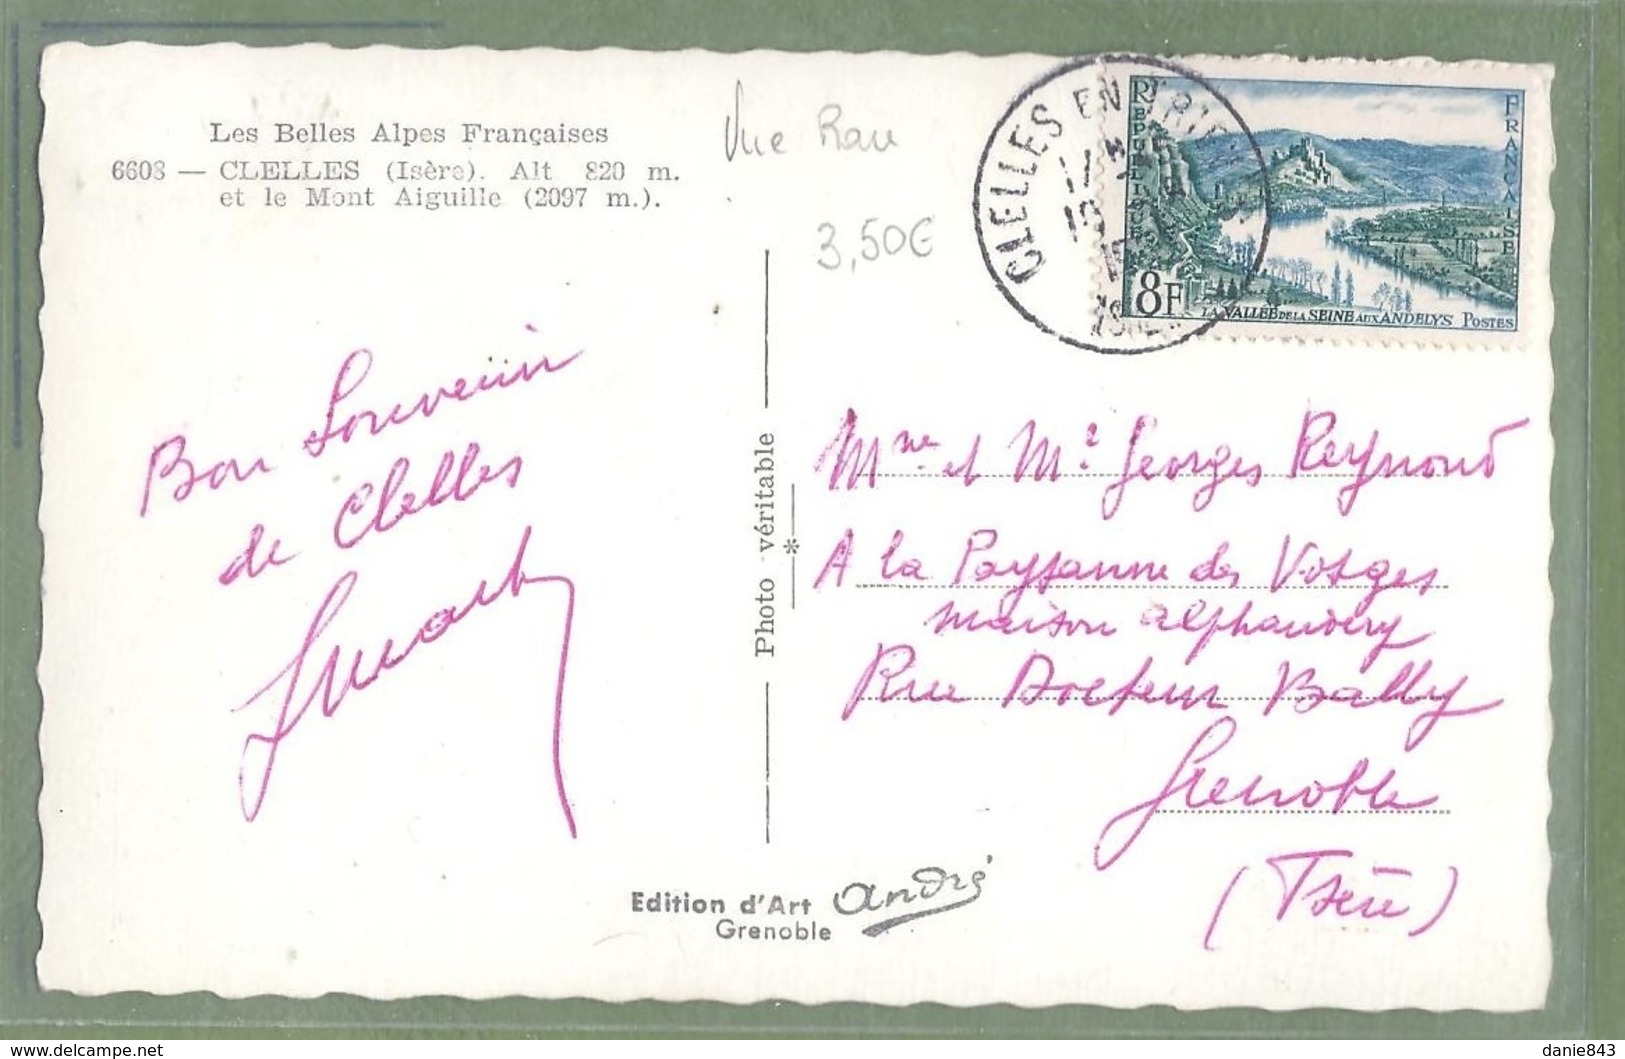 Les Belles Alpes Françaises
6608 — CLELLES (Isère). Alt 820 m.
et le Mont Aiguille (2097 m.).
Vue Rare
3,50€
CLELLES EN TRIEVES
ISERE
REPUBLIQUE
FRANÇAISE
8F
LA VALLEE DE LA SEINE AUX ANDELYS POSTES
Bon Souvenir
de Clelles
Photo véritable
Mme et Mr Georges Reymond
A la Paysanne des Vosges
maison alphandery
Rue Docteur Bally
Grenoble
(Isère)
Edition d'Art André
Grenoble
delcampe.net
danie843